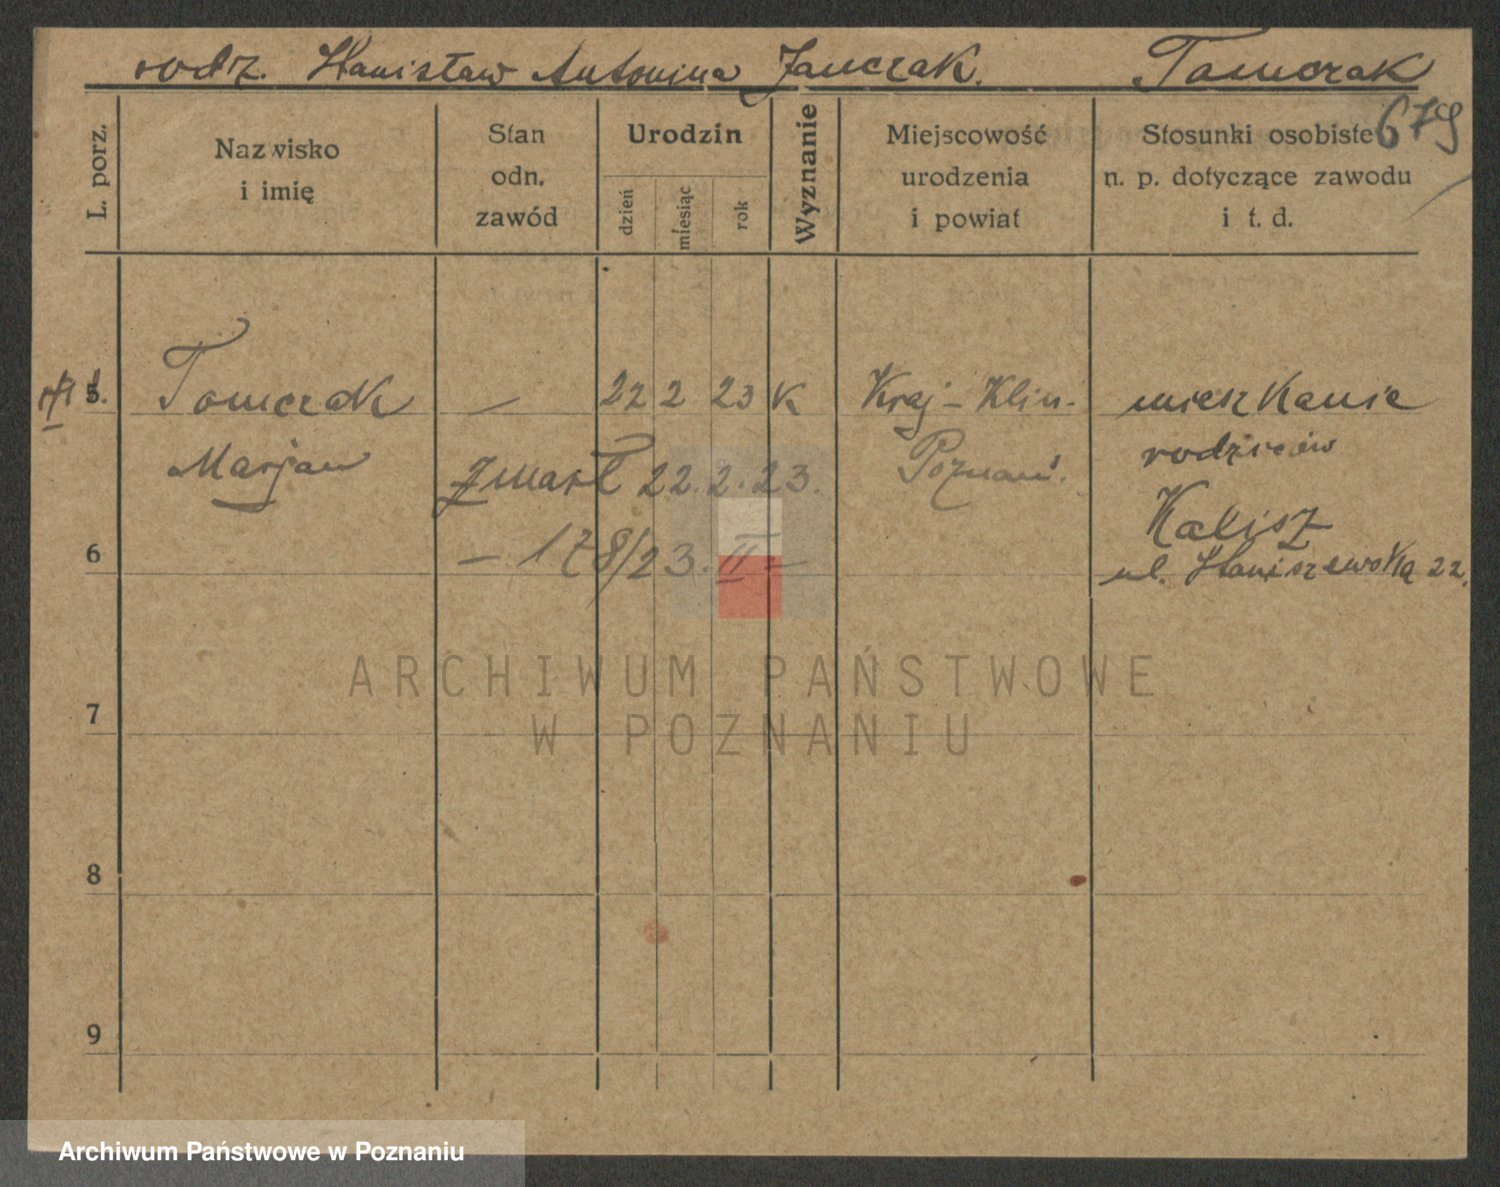 rodz. Stanisław Antonina Janczak. Tomczak
679
L. porz.
Nazwisko
i imię
Stan
odn.
zawód
Urodzin
dzień
miesiąc
rok
Wyznanie
Miejscowość
urodzenia
i powiat
Stosunki osobiste
n. p. dotyczące zawodu
i t. d.
5. Tomczak — 22 2 23 K Kraj-Klin. mieszkanie
Marjan Zmarł 22.2.23. Poznań. rodziców
Kalisz
6 — 178/23. II —
ul. Staniszewska 22.
7
8
9
ARCHIWUM PAŃSTWOWE
W POZNANIU
Archiwum Państwowe w Poznaniu